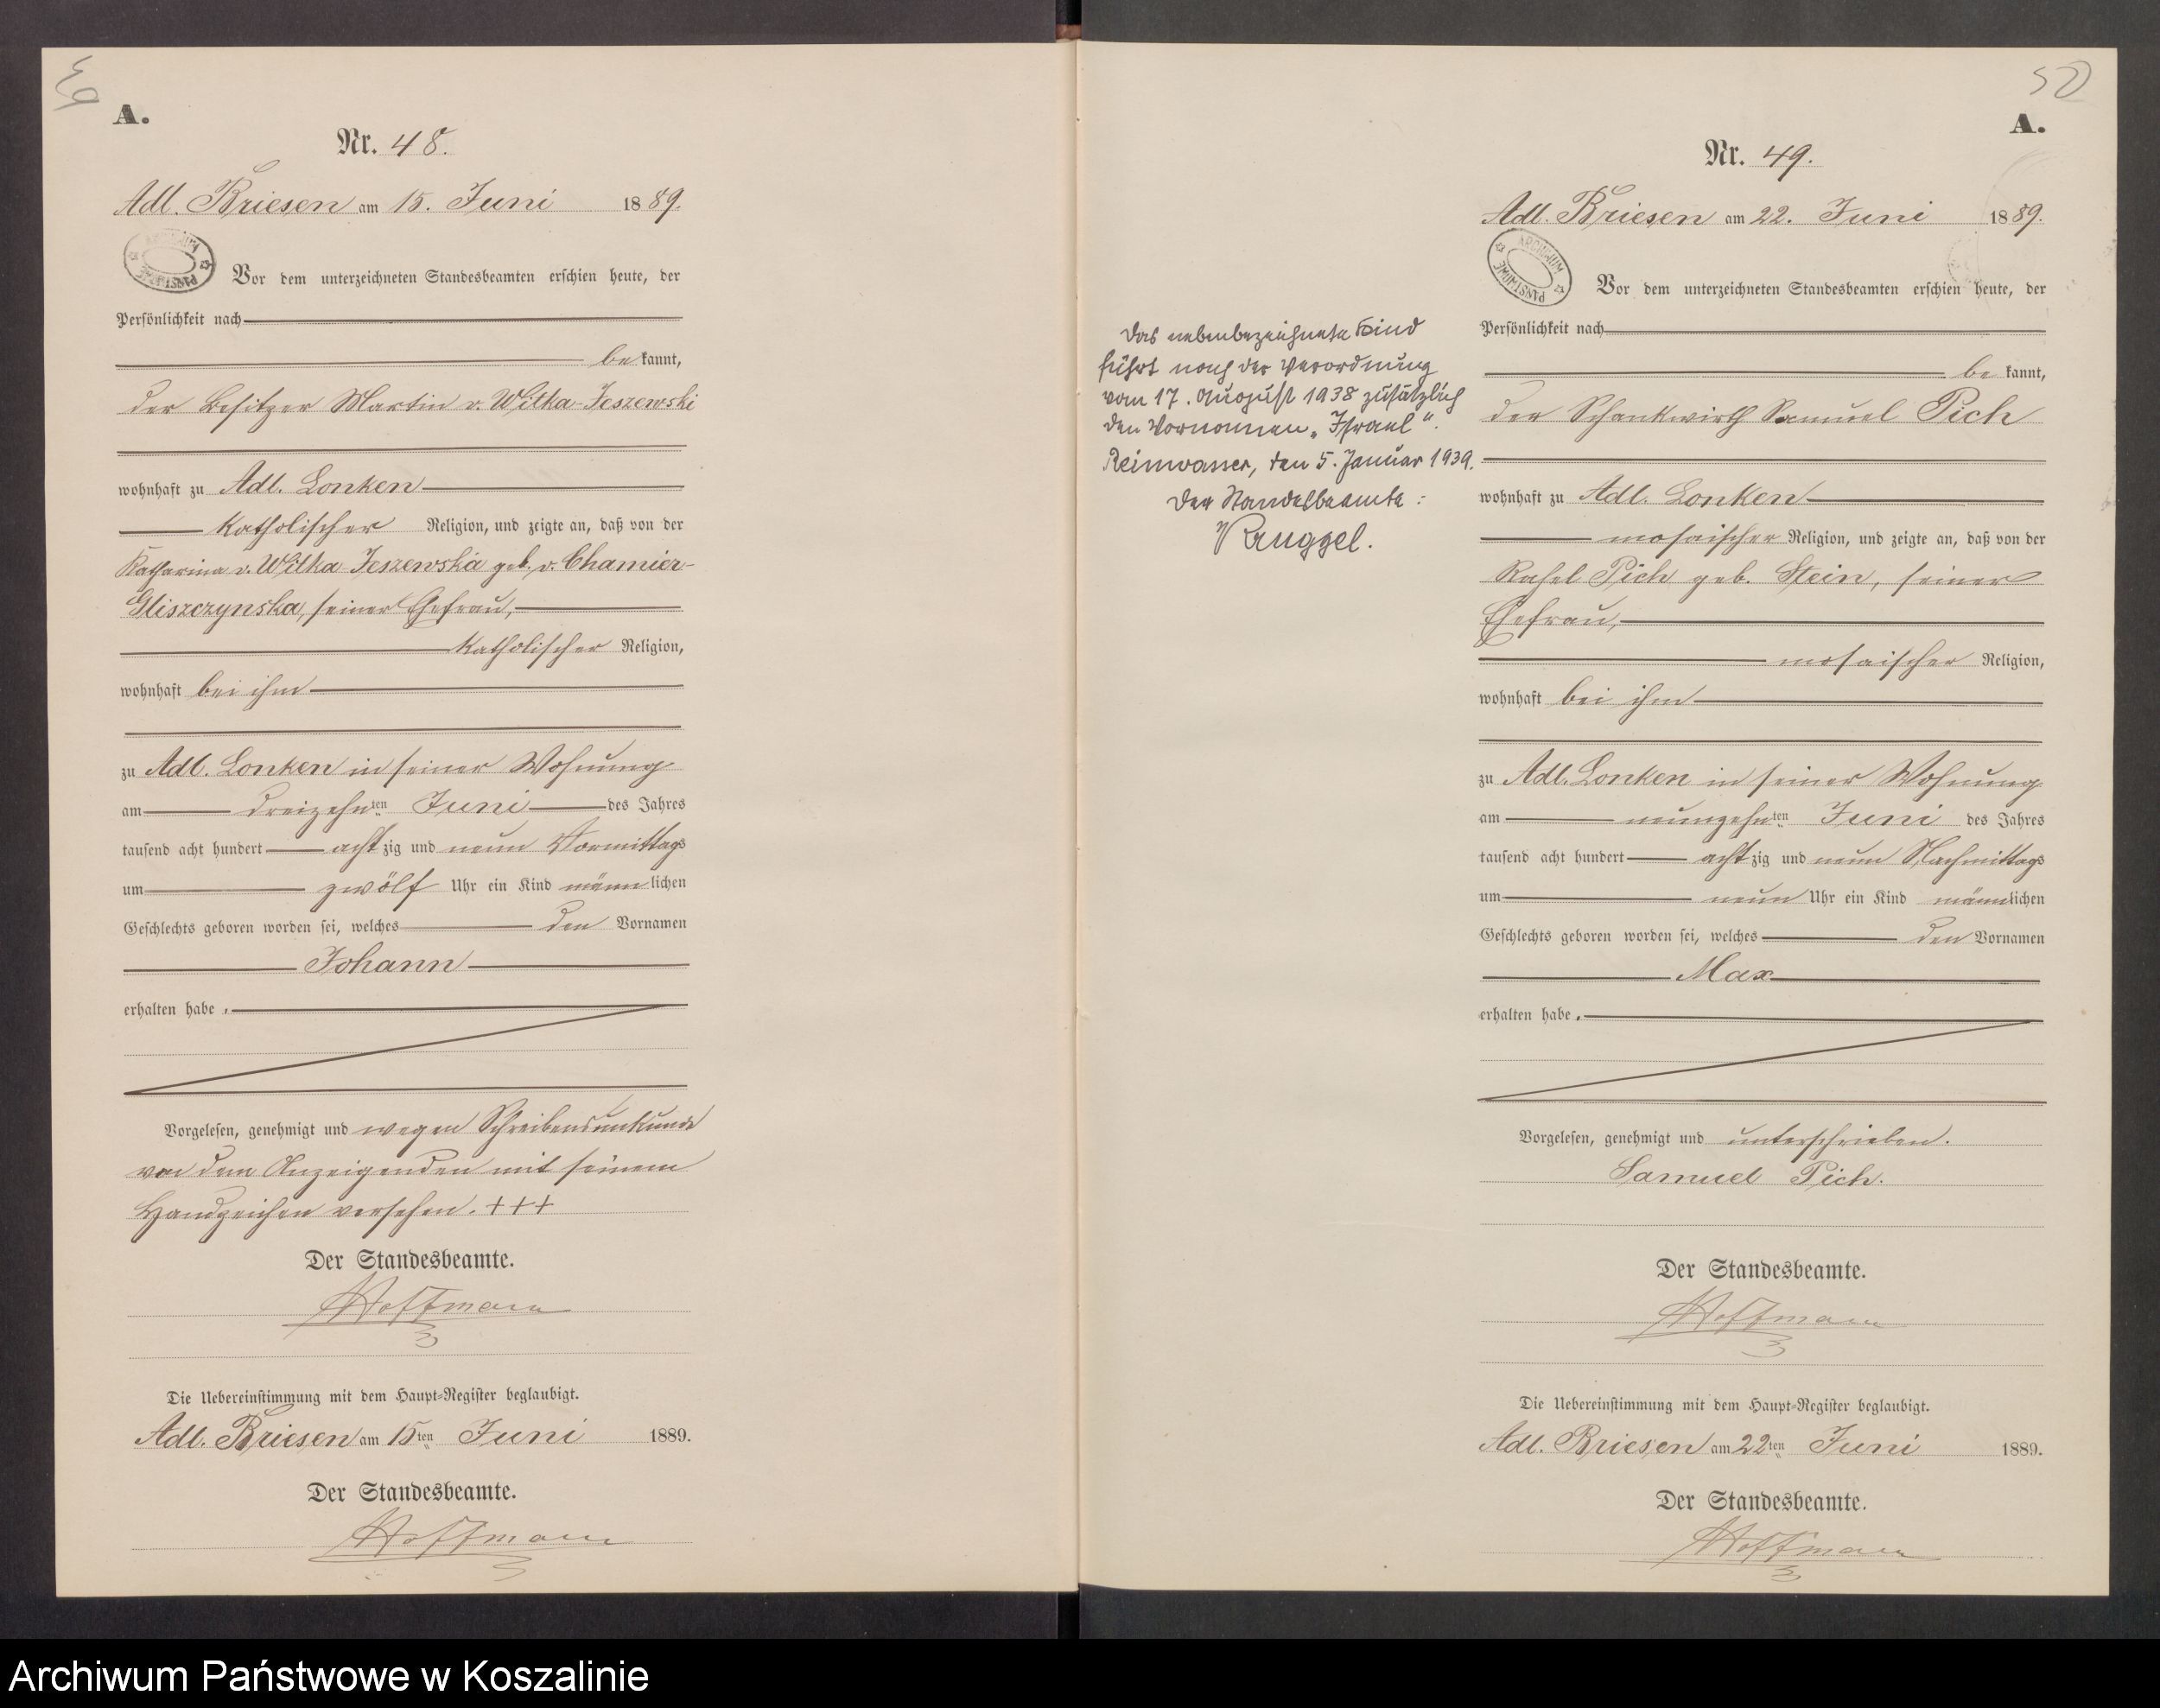 49
A.
Nr. 48.
Adl. Briesen am 15. Juni 1889.
ARCHIWUM PAŃSTWOWE
Vor dem unterzeichneten Standesbeamten erschien heute, der
Persönlichkeit nach
bekannt,
der Besitzer Martin v. Wilka-Jeszewski
wohnhaft zu Adl. Lonken
katholischer Religion, und zeigte an, daß von der
Katharina v. Wilka Jeszewska geb. v. Chamier-
Gliszczynska, seiner Ehefrau,
katholischer Religion,
wohnhaft bei ihm
zu Adl. Lonken in seiner Wohnung
am dreizehnten Juni des Jahres
tausend acht hundert achtzig und neun Vormittags
um zwölf Uhr ein Kind männlichen
Geschlechts geboren worden sei, welches den Vornamen
Johann
erhalten habe.
Vorgelesen, genehmigt und wegen Schreibensunkunde
von dem Anzeigenden mit seinem
Handzeichen versehen. +++
Der Standesbeamte.
Hoffmann
Die Uebereinstimmung mit dem Haupt-Register beglaubigt.
Adl. Briesen am 15ten Juni 1889.
Der Standesbeamte.
Hoffmann
50
A.
Nr. 49.
Adl. Briesen am 22. Juni 1889.
ARCHIWUM PAŃSTWOWE
Vor dem unterzeichneten Standesbeamten erschien heute, der
Persönlichkeit nach
bekannt,
der Schankwirth Samuel Pich
wohnhaft zu Adl. Lonken
mosaischer Religion, und zeigte an, daß von der
Rahel Pich geb. Stein, seiner
Ehefrau,
mosaischer Religion,
wohnhaft bei ihm
zu Adl. Lonken in seiner Wohnung
am neunzehnten Juni des Jahres
tausend acht hundert achtzig und neun Nachmittags
um neun Uhr ein Kind männlichen
Geschlechts geboren worden sei, welches den Vornamen
Max
erhalten habe.
Vorgelesen, genehmigt und unterschrieben.
Samuel Pich.
Der Standesbeamte.
Hoffmann
Die Uebereinstimmung mit dem Haupt-Register beglaubigt.
Adl. Briesen am 22ten Juni 1889.
Der Standesbeamte.
Hoffmann
Das nebenbezeichnete Kind
führt nach der Verordnung
vom 17. August 1938 zusätzlich
den Vornamen „Israel“.
Reinwasser, den 5. Januar 1939.
Der Standesbeamte:
Ruggel.
Archiwum Państwowe w Koszalinie